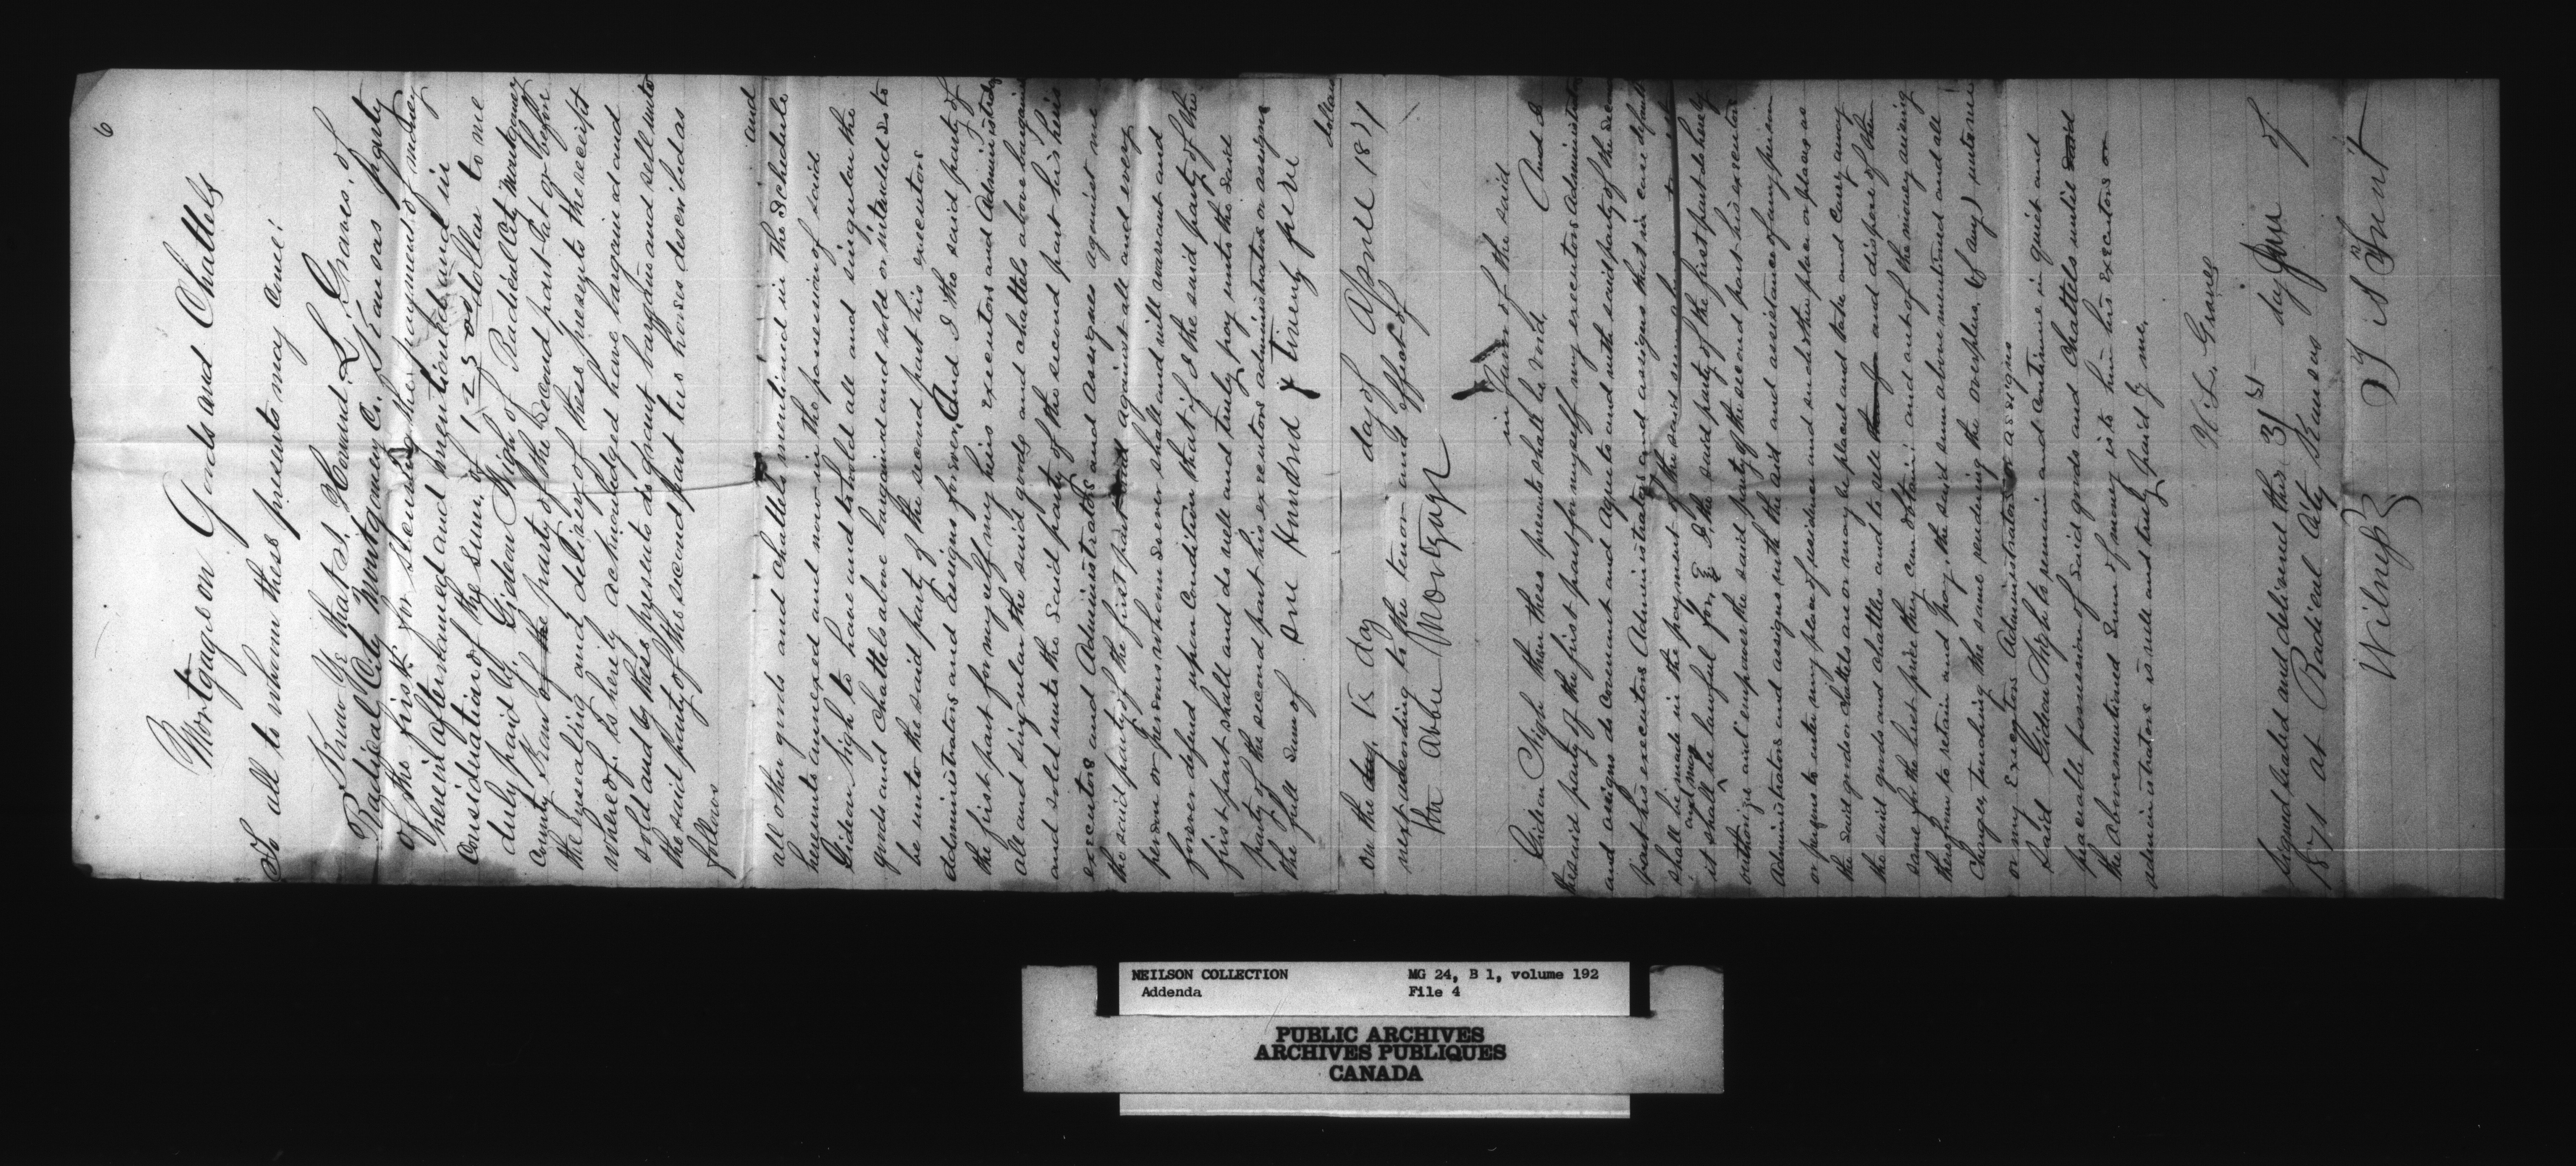 6
Mortgage on Goods and Chattels
To all to whom these presents may Come:
Know Ye that I, Howard L Graves, of
Radical City Montgomery Co. Kansas party
of the first. for securing the payment of money
herein after named and mentioned and in
Consideration of the sum of 125 00 dollars to me
duly paid by Gideon High of Radical City Montgomery
County Kan of the party of the Second part at or before
the Ensealing and delivery of these presents the receipt
whereof is hereby acknowledged have bargained and
sold and by these presents do grant bargain and sell unto
the said party of the second part two horses described as
follows
and
all other goods and chattels mentioned in the Schedule
hereunto annexed and now in the possession of said
Gideon High to have and to hold all and singular the
goods and chattels above bargained and sold or intended so to
be unto the said party of the second part his executors
administrators and assigns forever. And I the said party of
the first part for myself my heirs executors and Administrators
all and singular the said goods and chattels above bargained
and sold unto the said party of the second part his heirs
executors and Administrators and assignes against me
the said party of the first part and against all and every
person or persons whomsoever shall and will warrant and
forever defend upon Condition that if I the said party of the
first part shall and do well and truly pay unto the said
party of the second part his executors administrators or assigns
the full sum of one Hundred & twenty five
dollars
on the day 15 day day of Aprile 1871
next according to the tenor and effect of
the abbe Mortgage
in favor of the said
Gideon High then these presents shall be void, And I
the said party of the first part for myself my executors Administrators
and assigns do Covenant and agree to and with said party of the second
part his executors Administrators and assigns that in case default
shall be made in the payment of the said sum
and may
it shall be lawful for, & I, the said party of the first part do hereby
authorize and empower the said party of the second part his executors
Administrators and assigns with the aid and assistance of any person
or persons to enter my place of residence and such other place or places as
the said goods or chattels are or may be placed and take and carry away
the said goods and chattles and to sell and dispose of them
same for the best price they can obtain: and out of the money arising
therefrom to retain and pay, the said sum above mentioned and all
Charges touching the same rendering the overplus (if any) unto me
or my Executors Administrators or assigns
Said Gideon High to remain and continue in quiet and
peaceable possession of said goods and Chattles until said
the abovementioned sum of money is to him his Executors or
administrators is well and truly paid by me,
H. L. Graves
Signed sealed and delivered this 31st day Jan of
1871 at Radical City Kansas
Witness